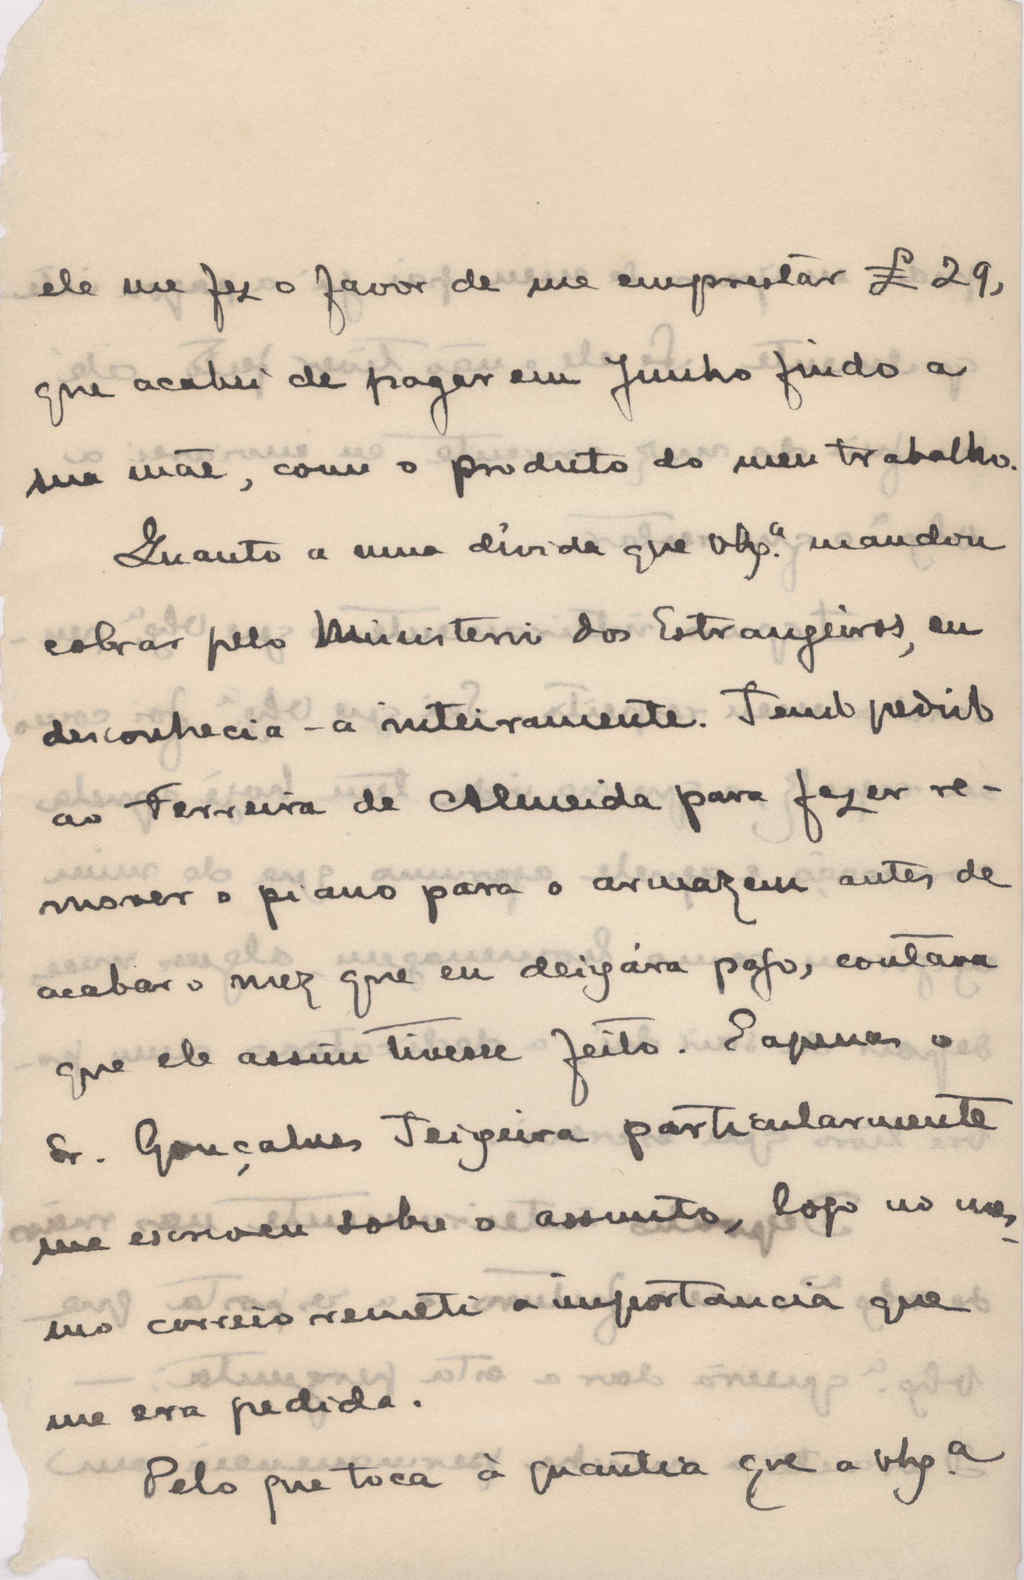 ele me fez o favor de me emprestar £ 29,
que acabei de pagar em Junho findo a
sua mãe, com o produto do meu trabalho.
Quanto a uma dívida que V.Ex.ª mandou
cobrar pelo Ministerio dos Estrangeiros, eu
desconhecia-a inteiramente. Tendo pedido
ao Ferreira de Almeida para fazer re-
mover o piano para o armazem antes de
acabar o mez que eu deixára pago, contava
que ele assim tivesse feito. E apenas o
Sr. Gonçalves Teixeira particularmente
me escreveu sobre o assunto, logo no mes-
mo correio remeti a importancia que
me era pedida.
Pelo que toca à quantia que a V.Ex.ª